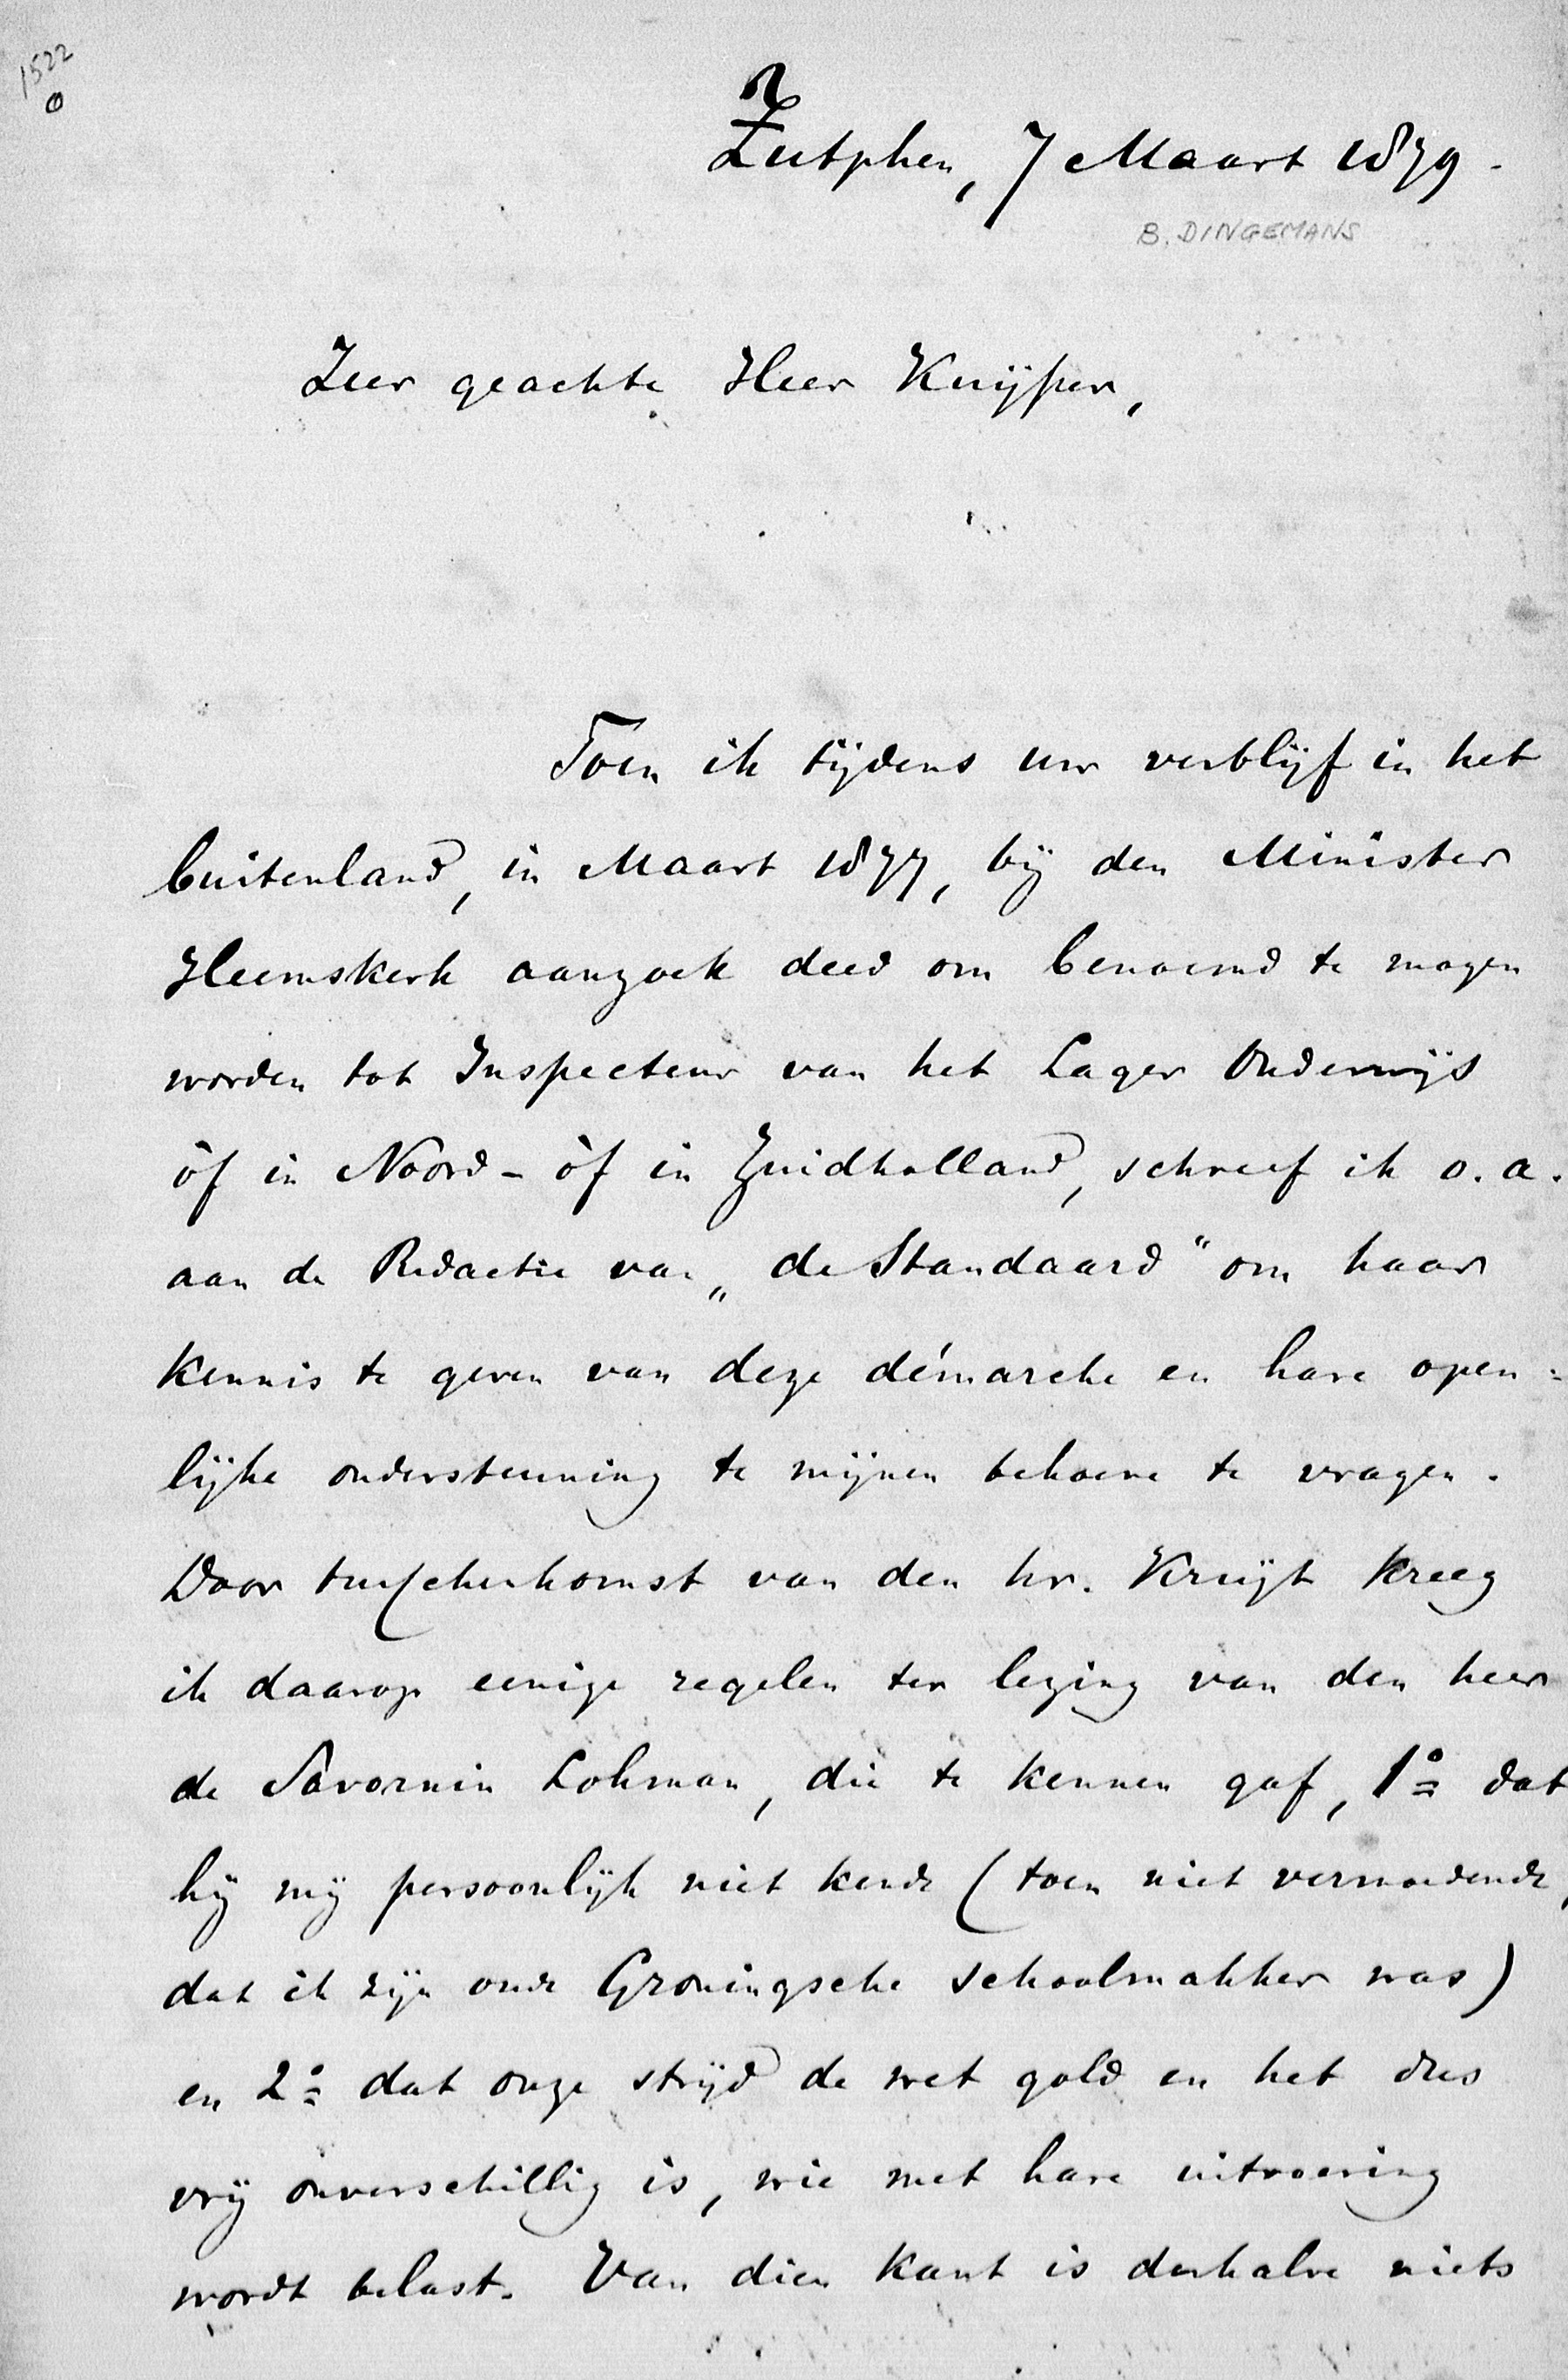 1522
Zutphen, 7 Maart 1879.
B. DINGEMANS
Zeer geachte Heer Kuijper,
Toen ik tijdens uw verblijf in het
buitenland, in Maart 1877, bij den Minister
Heemskerk aanzoek deed om benoemd te mogen
worden tot Inspecteur van het Lager Onderwijs
òf in Noord- òf in Zuidholland, schreef ik o. a.
aan de Redactie van „de Standaard" om haar
kennis te geven van deze démarche en hare open=
lijke ondersteuning te mijnen behoeve te vragen.
Door tusschenkomst van den hr. Kruijt kreeg
ik daarop eenige regelen ter lezing van den heer
de Savornin Lohman, die te kennen gaf, 1o dat
hij mij persoonlijk niet kende (toen niet vermoedende,
dat ik zijn oude Groningsche schoolmakker was)
en 2o dat onze strijd de wet gold en het dus
vrij onverschillig is, wie met hare uitvoering
wordt belast. Van dien kant is derhalve niets